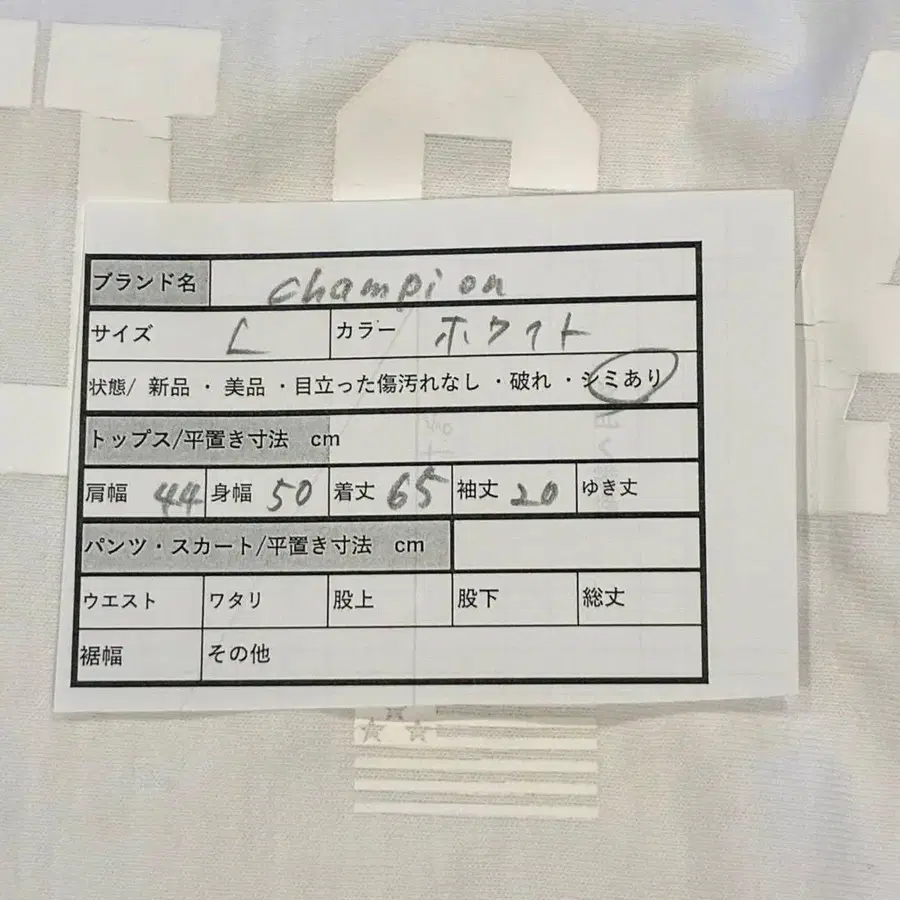 ブランド名 champion
サイズ L カラー ホワイト
状態/ 新品 ・ 美品 ・目立った傷汚れなし ・破れ ・シミあり
トップス/平置き寸法 cm
肩幅 44 身幅 50 着丈 65 袖丈 20 ゆき丈
パンツ・スカート/平置き寸法 cm
ウエスト ワタリ 股上 股下 総丈
裾幅 その他